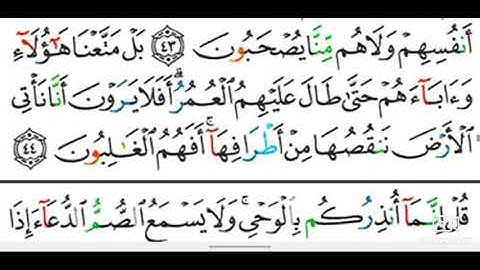 أَنفُسِهِمْ وَلَا هُم مِّنَّا يُصْحَبُونَ ٤٣ بَلْ مَتَّعْنَا هَٰٓؤُلَآءِ
وَءَابَآءَهُمْ حَتَّىٰ طَالَ عَلَيْهِمُ الْعُمُرُ ۗ أَفَلَا يَرَوْنَ أَنَّا نَأْتِي
الْأَرْضَ نَنقُصُهَا مِنْ أَطْرَافِهَآ ۚ أَفَهُمُ الْغَٰلِبُونَ ٤٤
قُلْ إِنَّمَآ أُنذِرُكُم بِالْوَحْيِ ۚ وَلَا يَسْمَعُ الصُّمُّ الدُّعَآءَ إِذَا